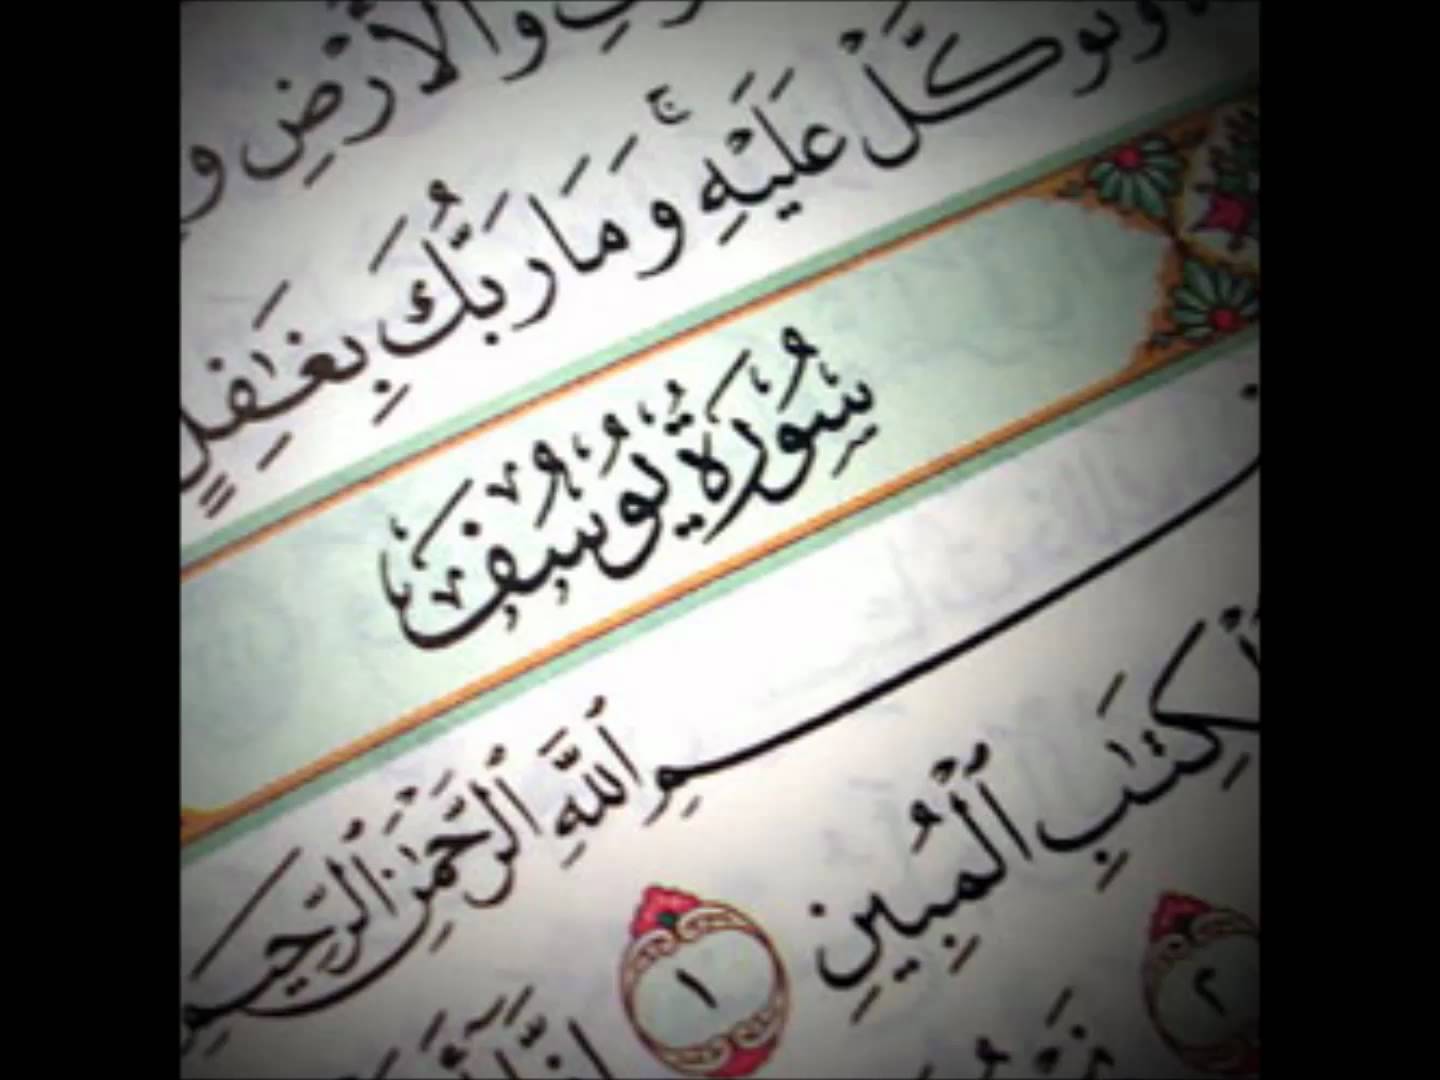 وَٱلْأَرْضِ
وَتَوَكَّلْ عَلَيْهِ ۚ وَمَا رَبُّكَ بِغَٰفِلٍ
سُورَةُ يُوسُفَ
بِسْمِ ٱللَّهِ ٱلرَّحْمَٰنِ ٱلرَّحِيمِ
ٱلْكِتَٰبِ ٱلْمُبِينِ ١ إِنَّآ
٢ نَحْنُ